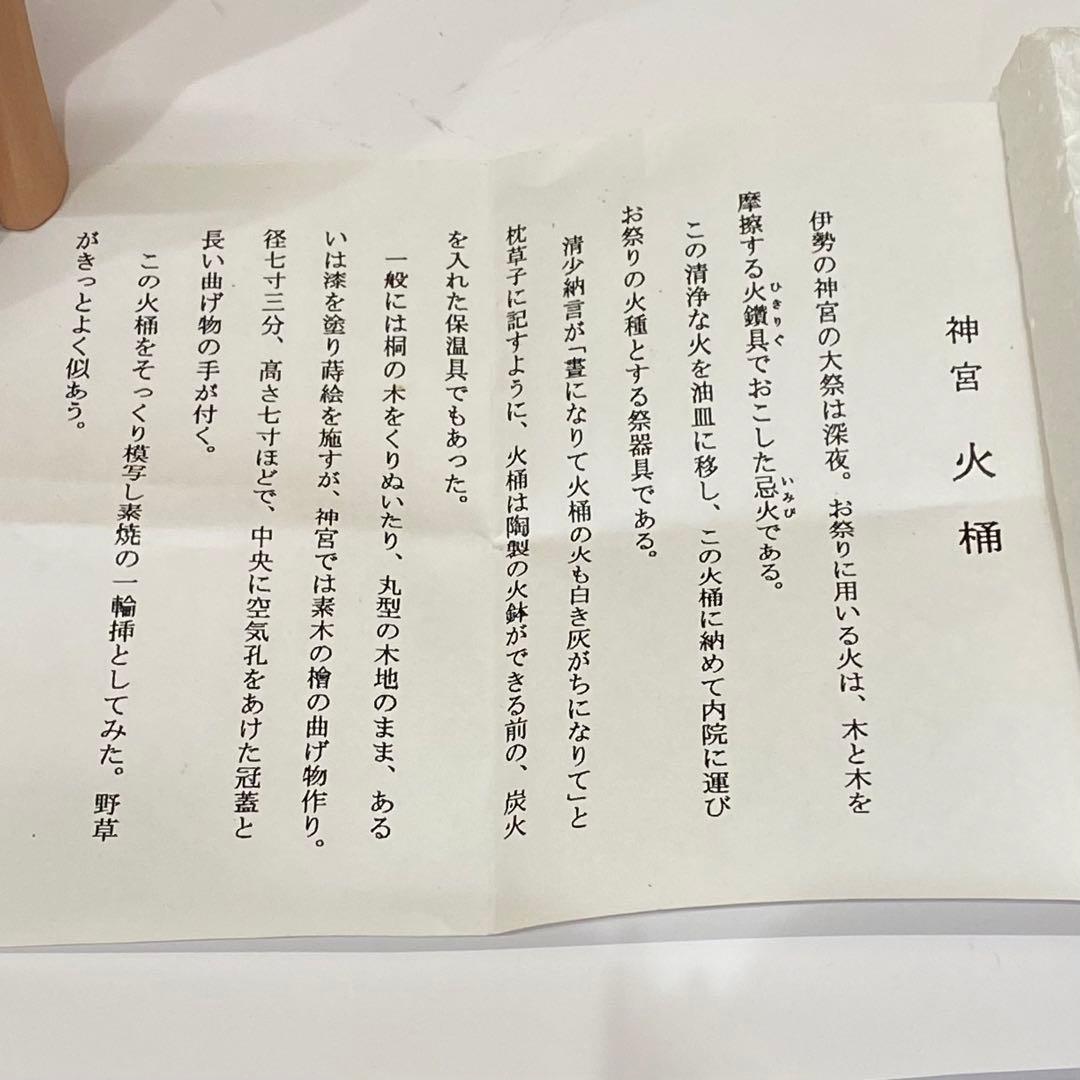 神宮 火桶
伊勢の神宮の大祭は深夜。お祭りに用いる火は、木と木を
摩擦する火鑽具でおこした忌火である。
ひきりぐ
いみび
この清浄な火を油皿に移し、この火桶に納めて内院に運び
お祭りの火種とする祭器具である。
清少納言が「晝になりて火桶の火も白き灰がちになりて」と
枕草子に記すように、火桶は陶製の火鉢ができる前の、炭火
を入れた保温具でもあった。
一般には桐の木をくりぬいたり、丸型の木地のまま、ある
いは漆を塗り蒔絵を施すが、神宮では素木の檜の曲げ物作り。
径七寸三分、高さ七寸ほどで、中央に空気孔をあけた冠蓋と
長い曲げ物の手が付く。
この火桶をそっくり模写し素焼の一輪挿としてみた。野草
がきっとよく似あう。